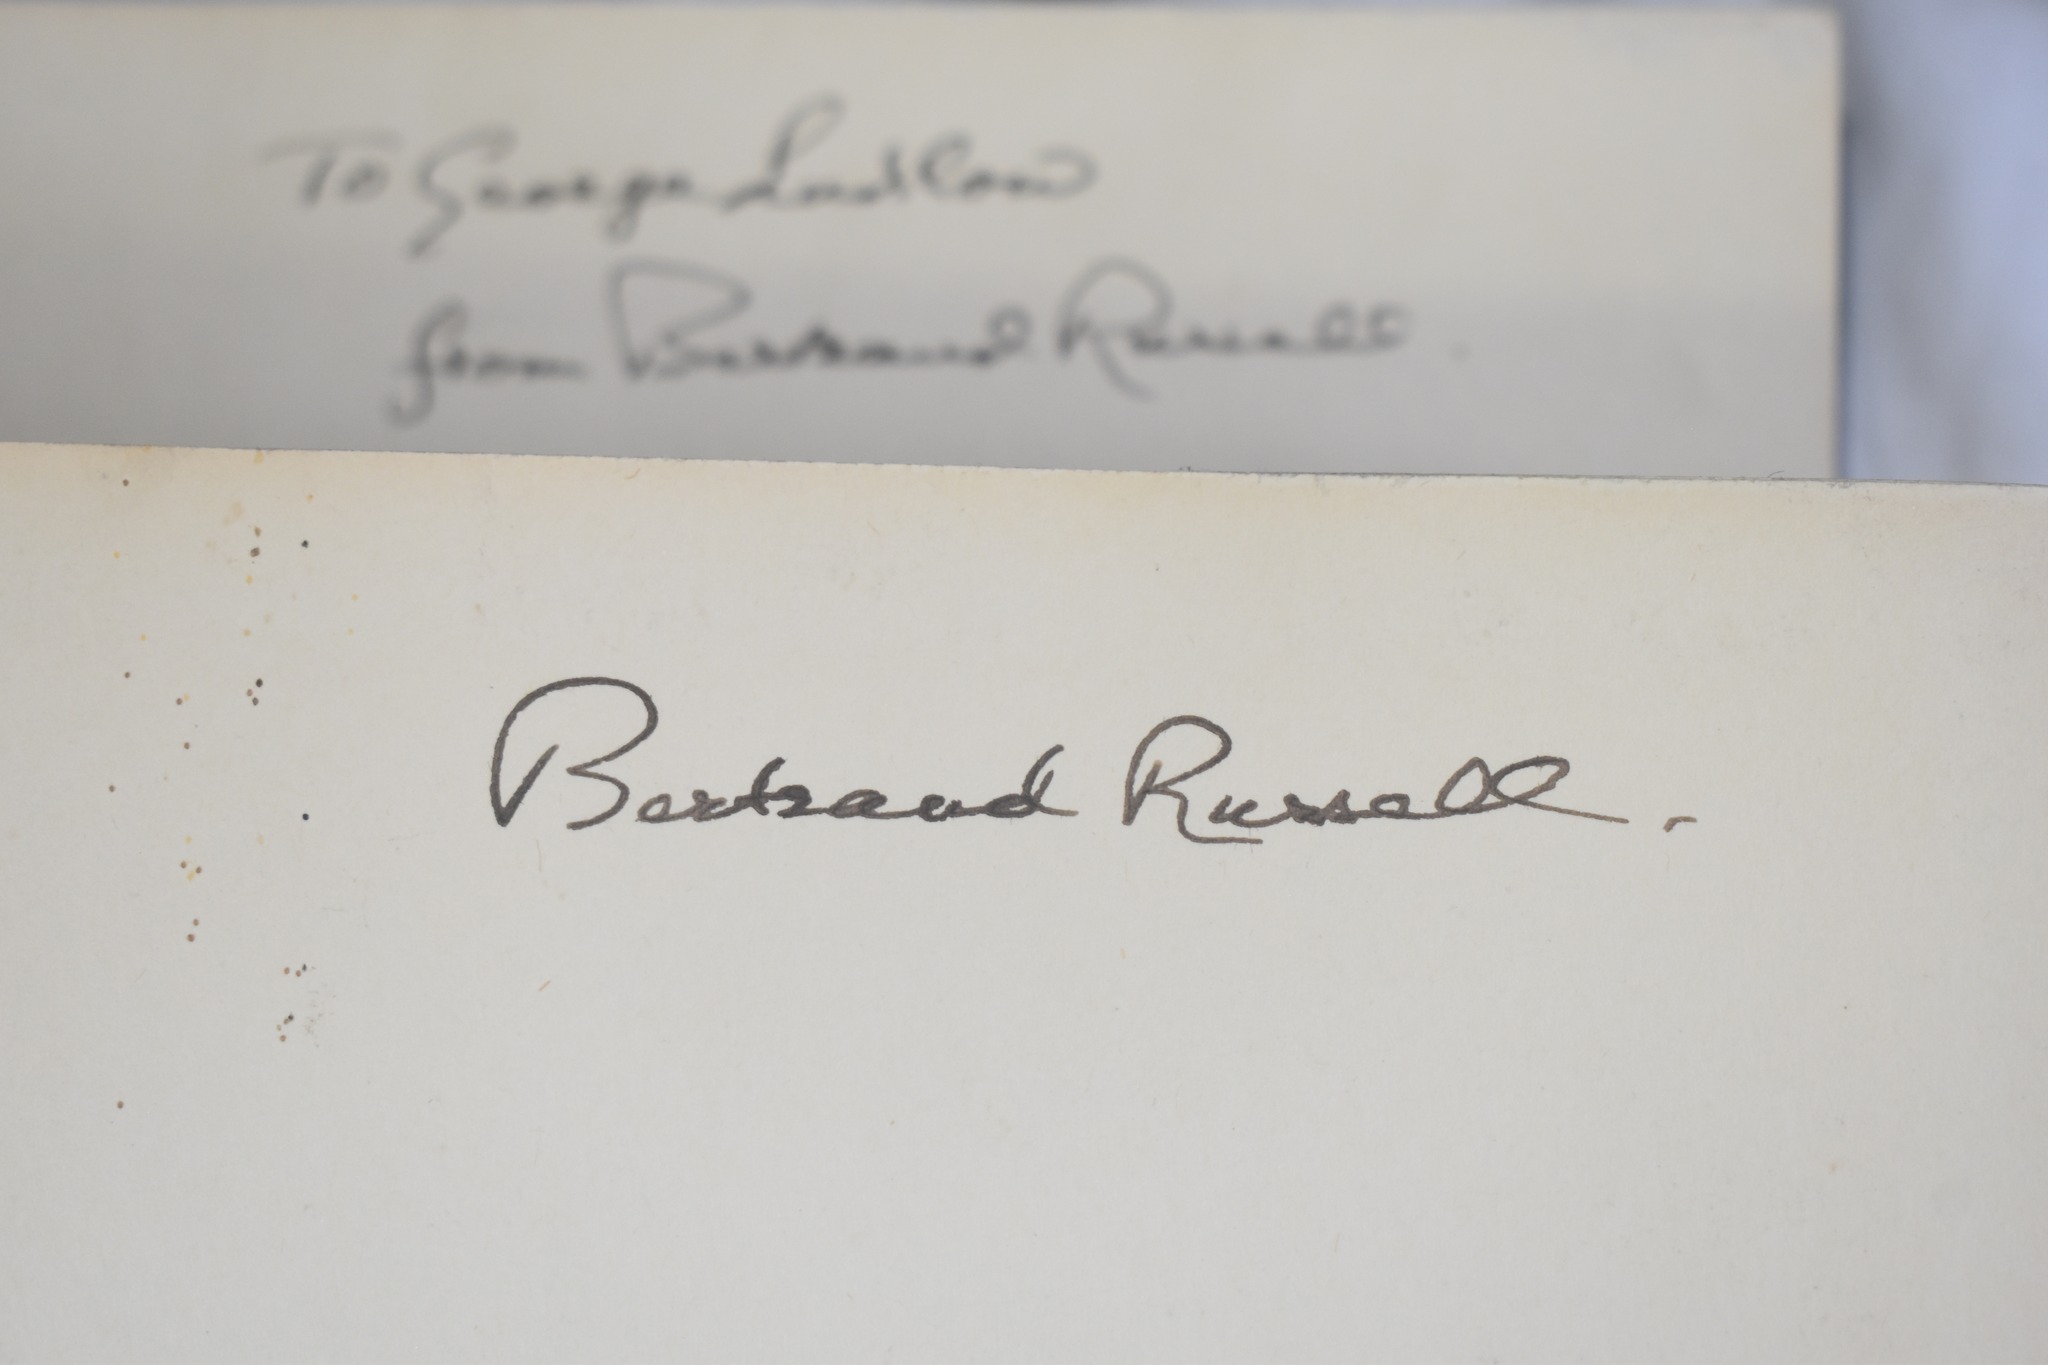 To George Ludlow
from Bertrand Russell.
Bertrand Russell.